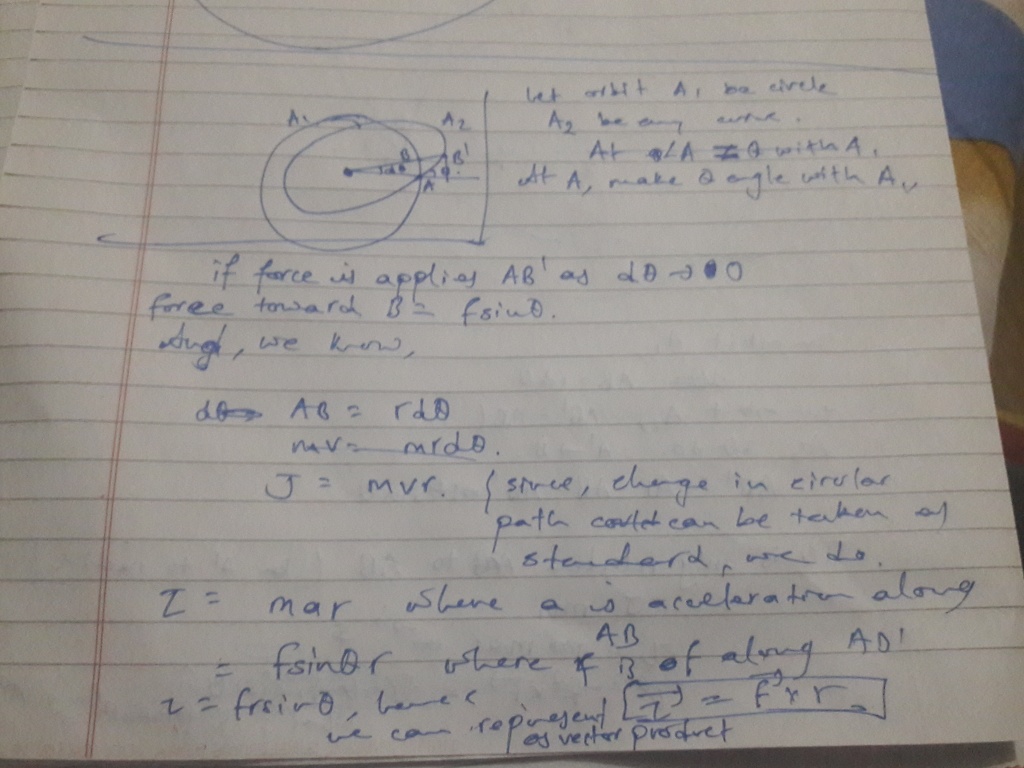 let orbit A₁ be circle
A₂ be any curve.
At ∠A = θ with A₁
At A, make θ angle with A₁,
A₁
A₂
θ
B'
dθ
A
if force is applies AB' as dθ → 0
force toward B = fsinθ.
we know,
AB = rdθ
mv = mrdθ.
J = mvr. (since, change in circular
path can be taken as
standard, we do.
τ = mar where a is acceleration along
AB
= fsinθr where f of along AB'
τ = frsinθ, hence
we can represent τ⃗ = f⃗ × r
as vector product